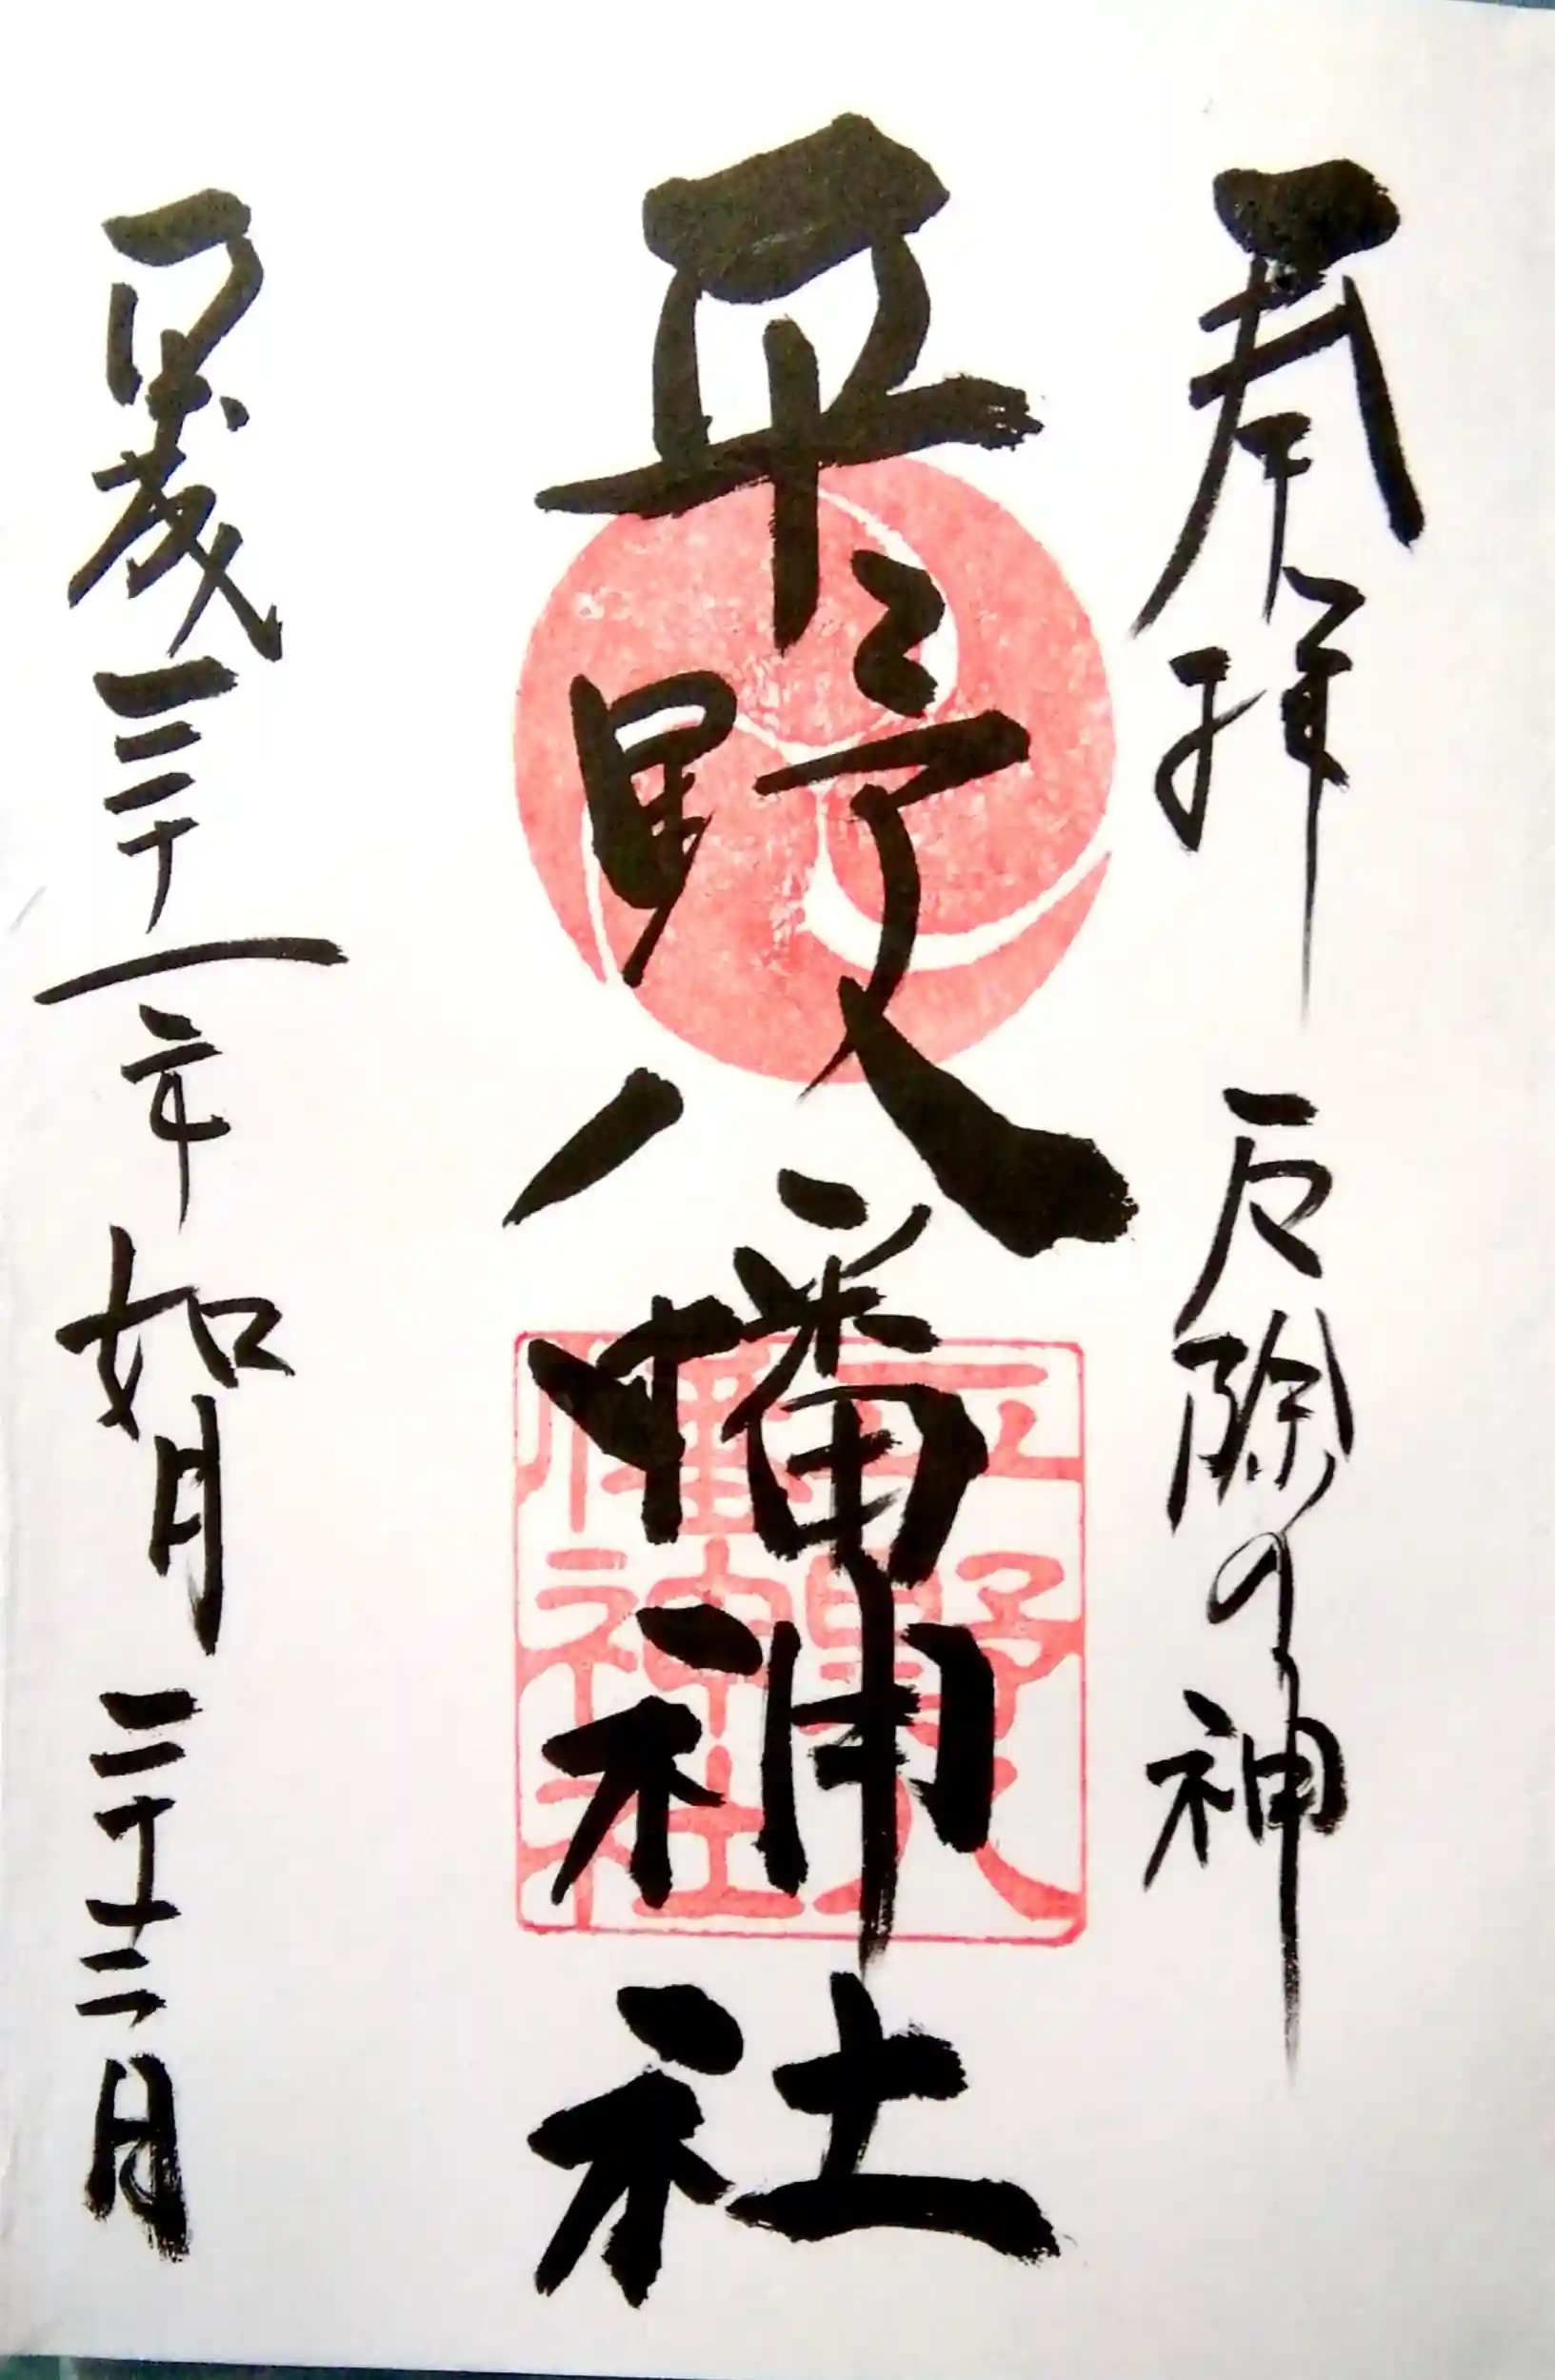 奉拝 厄除の神
平野八幡神社
平成三十一年 如月 二十三日
平野八幡神社